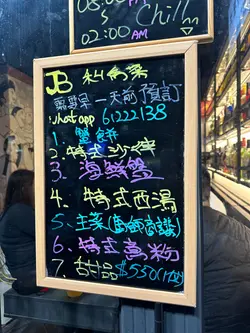 08:00
Chill
02:00 AM
JB 私房菜
需要早一天前預訂
whatapp 61222138
1. 蟹餅
2. 特式沙律
3. 海鮮盤
4. 特式西湯
5. 主菜(廚師高議)
6. 特式意粉
7. 甜品 $550(1位)